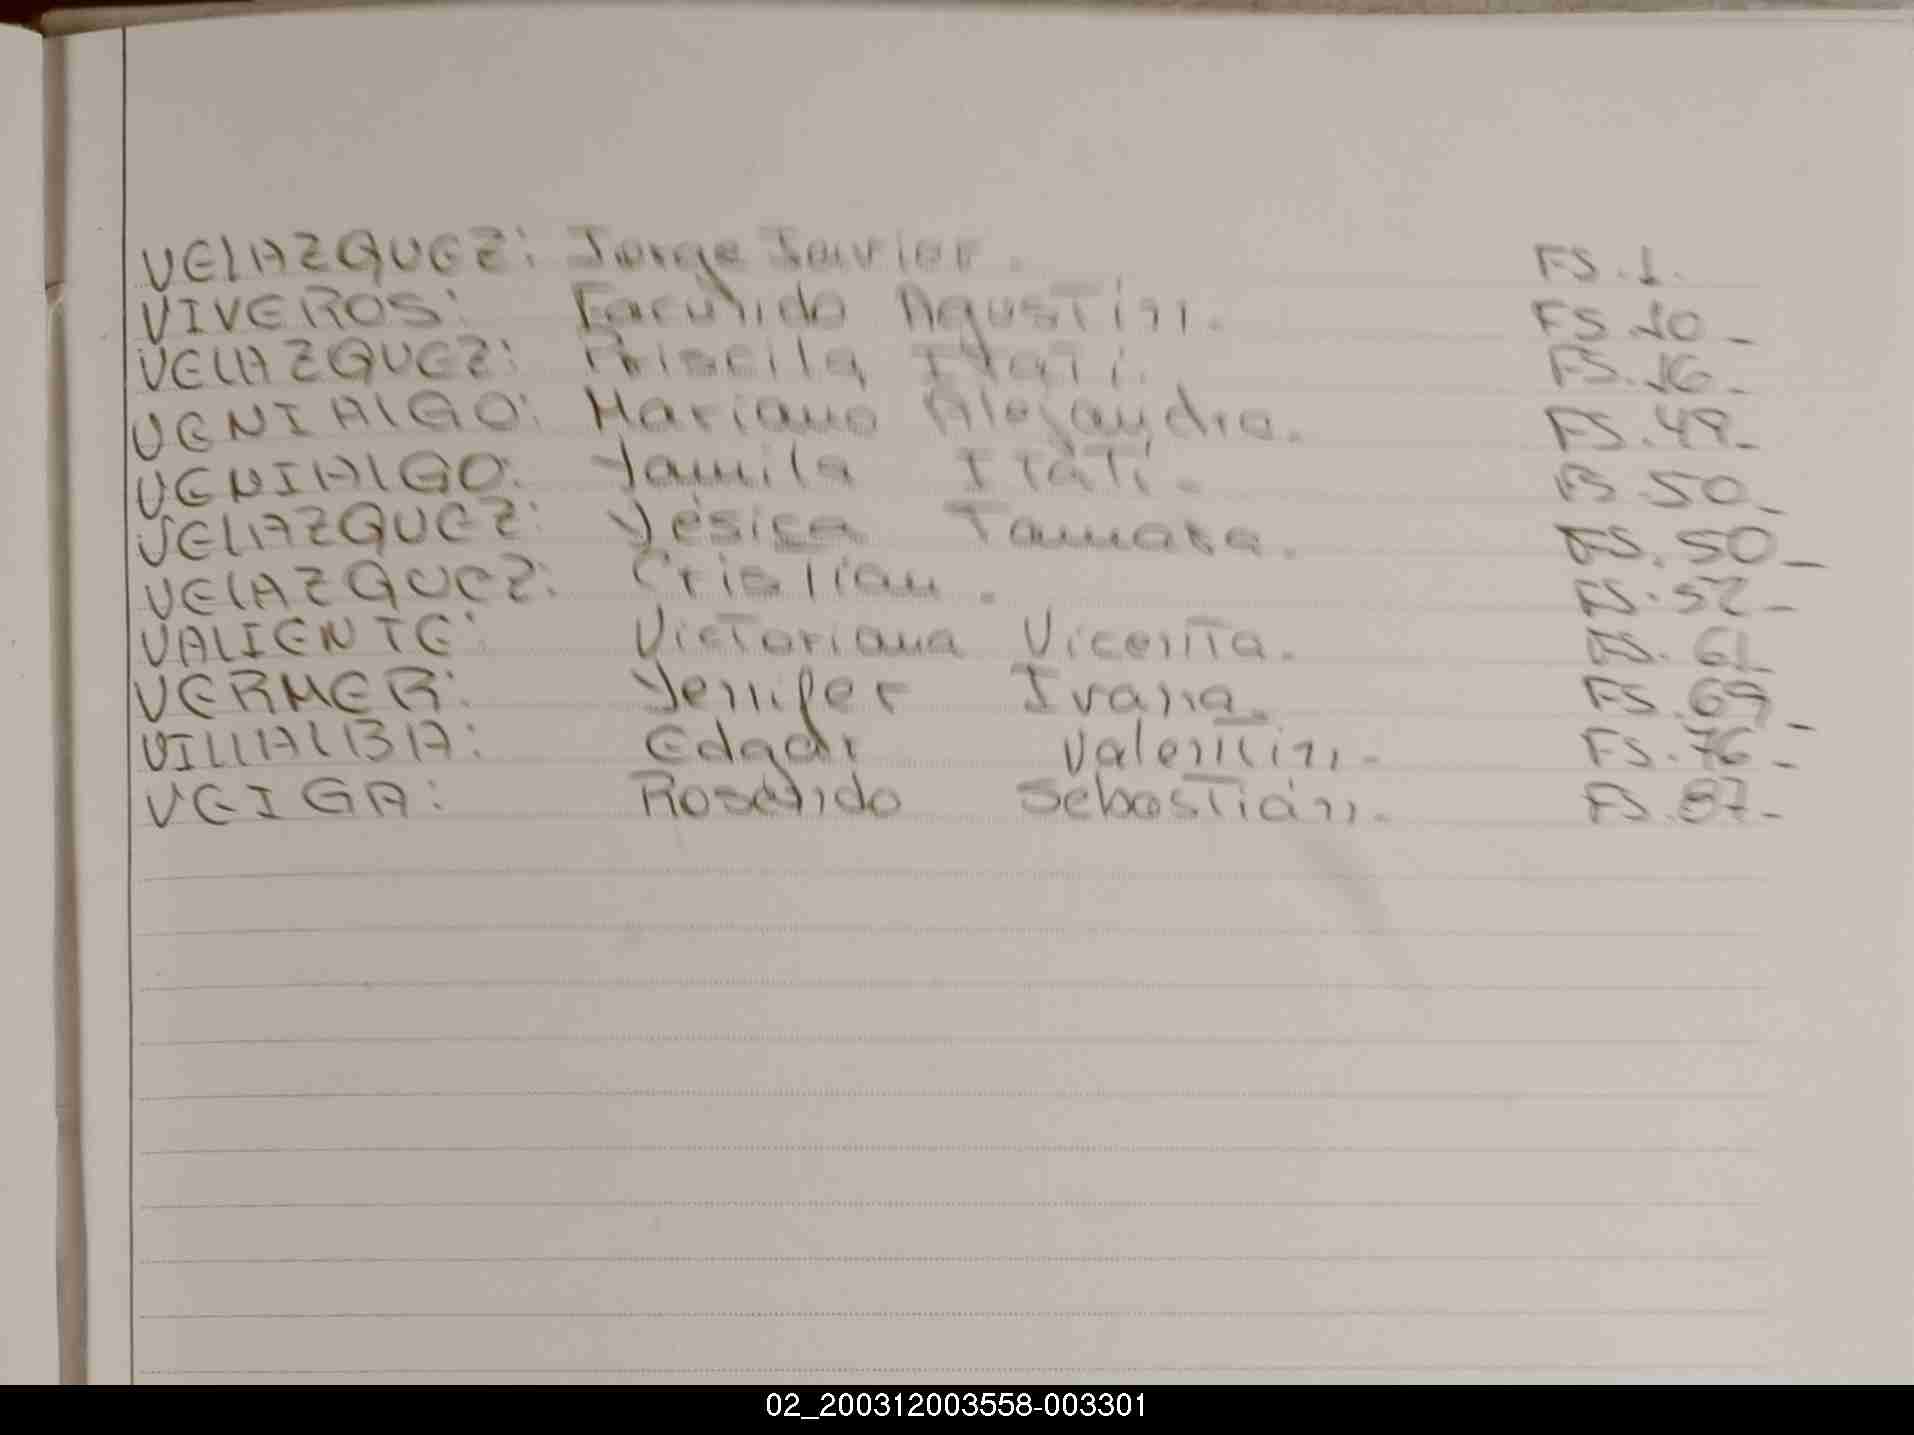 VELAZQUEZ: Jorge Javier. FS.1.
VIVEROS: Facundo Agustin. FS 10_
VELAZQUEZ: Priscila Itati. FS.16-
VENIALGO: Mariano Alejandro. FS.49-
VENIALGO: Yamila Itati. FS.50_
VELAZQUEZ: Yésica Tamara. FS.50_
VELAZQUEZ: Cristian. FS.52-
VALIENTE: Victoriana Vicenta. FS.61_
VERMER: Yennifer Ivana. FS.69_
VILLALBA: Edgar Valentin. FS.76-
VEIGA: Rosendo Sebastián. FS.87-
02_200312003558-003301